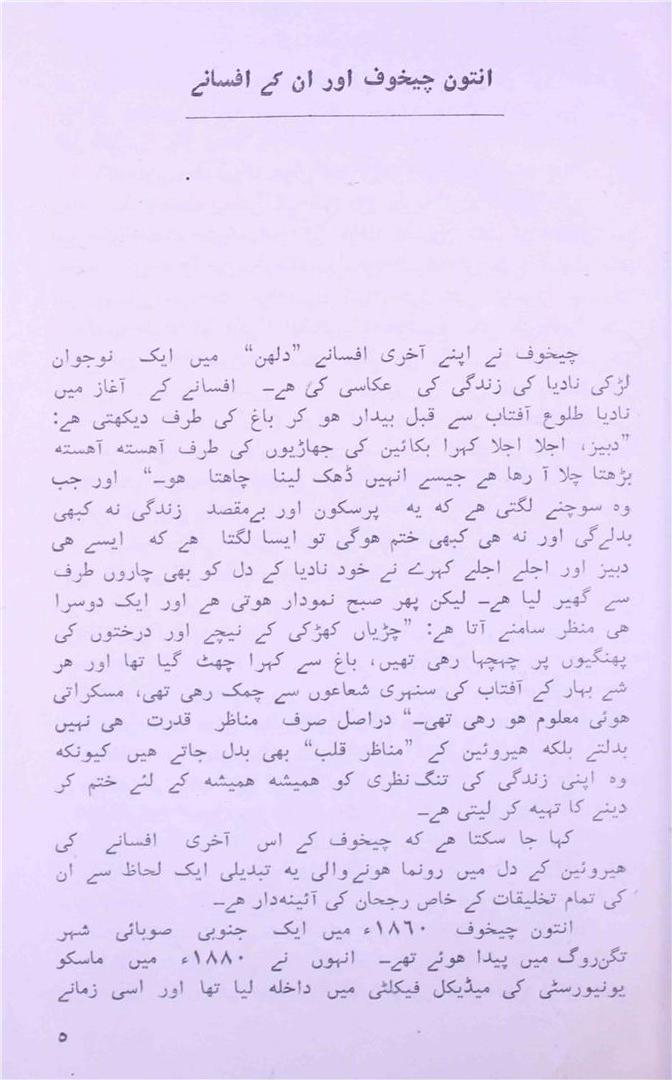 انتون چیخوف اور ان کے افسانے
چیخوف نے اپنے آخری افسانے ”دلھن“ میں ایک نوجوان
لڑکی نادیا کی زندگی کی عکاسی کی ھے۔ افسانے کے آغاز میں
نادیا طلوع آفتاب سے قبل بیدار ھو کر باغ کی طرف دیکھتی ھے:
”دبیز، اجلا اجلا کہرا بکائین کی جھاڑیوں کی طرف آھستہ آھستہ
بڑھتا چلا آ رھا ھے جیسے انہیں ڈھک لینا چاھتا ھو۔“ اور جب
وہ سوچنے لگتی ھے کہ یہ پرسکون اور بےمقصد زندگی نہ کبھی
بدلےگی اور نہ ھی کبھی ختم ھوگی تو ایسا لگتا ھے کہ ایسے ھی
دبیز اور اجلے اجلے کہرے نے خود نادیا کے دل کو بھی چاروں طرف
سے گھیر لیا ھے۔ لیکن پھر صبح نمودار ھوتی ھے اور ایک دوسرا
ھی منظر سامنے آتا ھے: ”چڑیاں کھڑکی کے نیچے اور درختوں کی
پھنگیوں پر چہچہا رھی تھیں، باغ سے کہرا چھٹ گیا تھا اور ھر
شے بہار کے آفتاب کی سنہری شعاعوں سے چمک رھی تھی، مسکراتی
ھوئی معلوم ھو رھی تھی۔“ دراصل صرف مناظر قدرت ھی نہیں
بدلتے بلکہ ھیروئین کے ”مناظر قلب“ بھی بدل جاتے ھیں کیونکہ
وہ اپنی زندگی کی تنگ نظری کو ھمیشہ ھمیشہ کے لئے ختم کر
دینے کا تہیہ کر لیتی ھے۔
کہا جا سکتا ھے کہ چیخوف کے اس آخری افسانے کی
ھیروئین کے دل میں رونما ھونےوالی یہ تبدیلی ایک لحاظ سے ان
کی تمام تخلیقات کے خاص رجحان کی آئینہدار ھے۔
انتون چیخوف ۱۸۶۰ء میں ایک جنوبی صوبائی شہر
تگن‌روگ میں پیدا ھوئے تھے۔ انہوں نے ۱۸۸۰ء میں ماسکو
یونیورسٹی کی میڈیکل فیکلٹی میں داخلہ لیا تھا اور اسی زمانے
۵